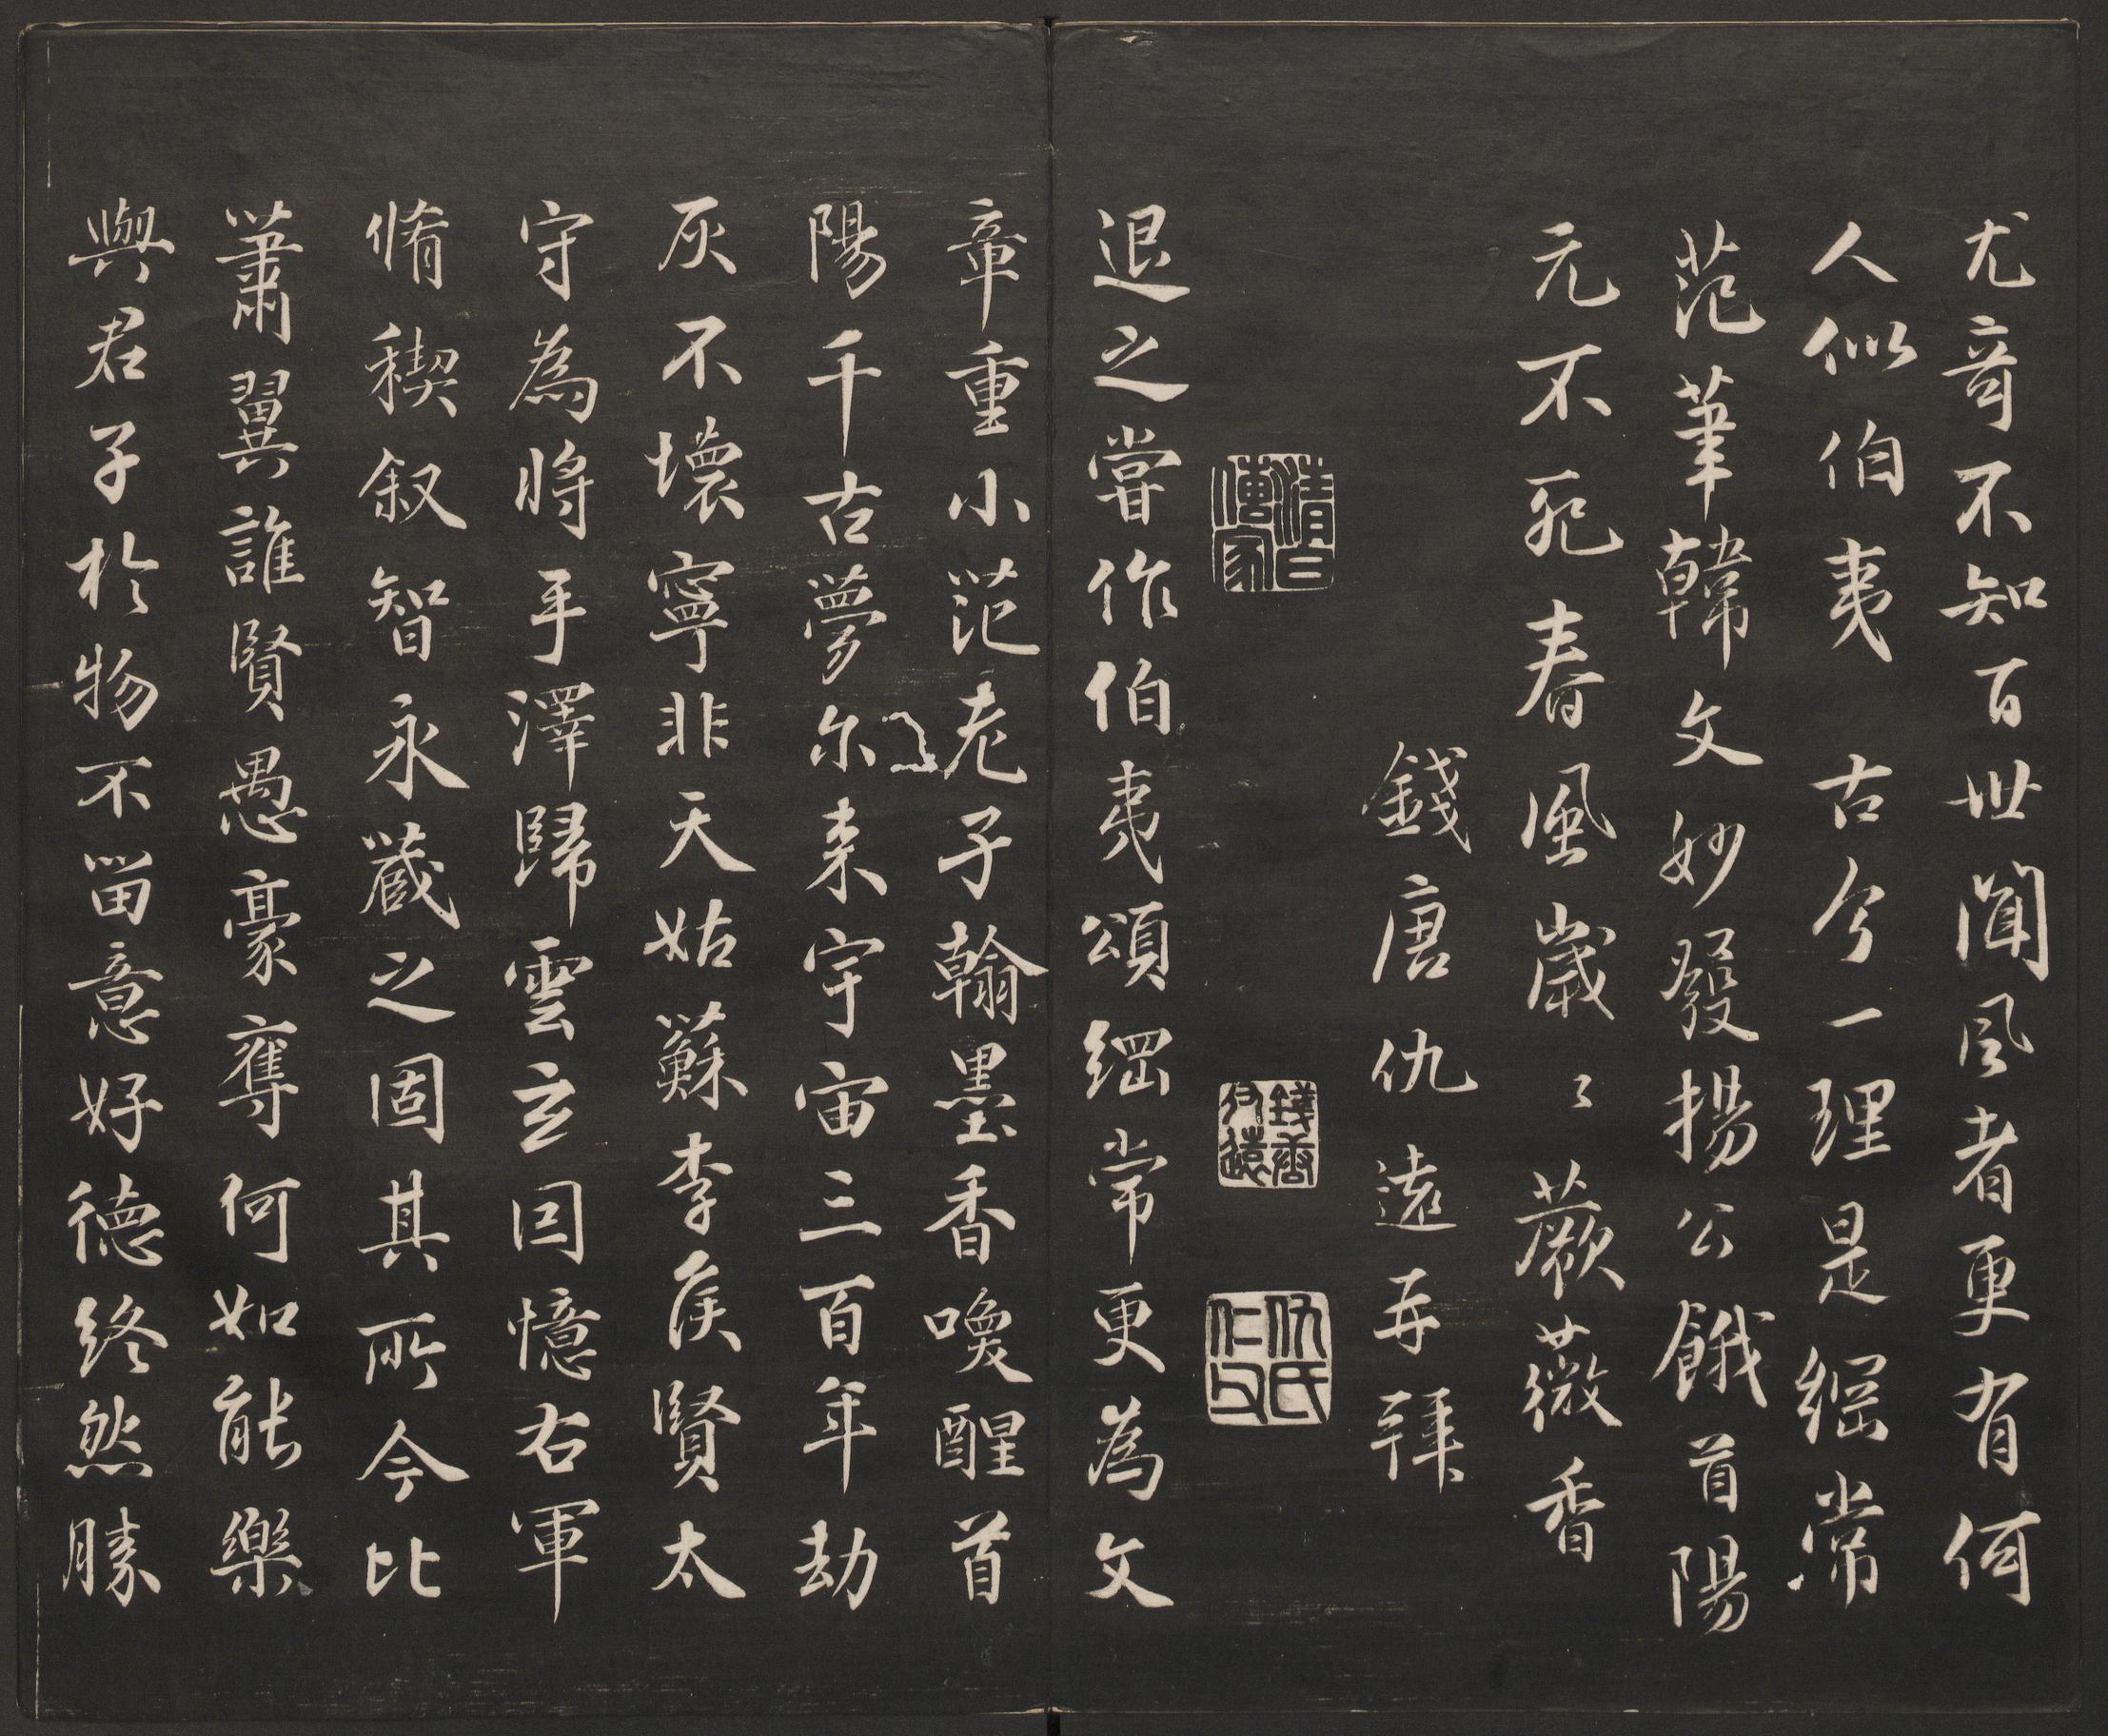 尤奇不知百世聞風者更有何
人似伯夷　古今一理是綱常
范筆韓文妙發揚公餓首陽
元不死春風歲〻蕨薇香
錢唐仇遠再拜
清白傳家
錢唐仇遠
仇氏仁父
退之嘗作伯夷頌綱常更為文
章重小范老子翰墨香喚醒首
陽千古夢尔来宇宙三百年劫
灰不壞寧非天姑蘇李侯賢太
守為將手澤歸雲玄囙憶右軍
脩稧叙智永蔵之固其所今比
蕭翼誰賢愚豪奪何如能樂
與君子於物不畱意好德終然勝